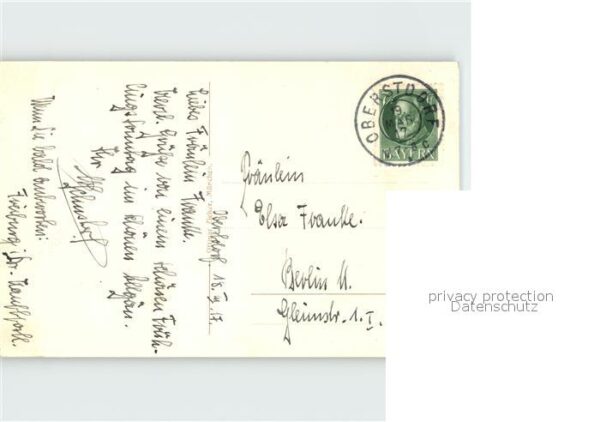 Oberstdorf 18. IV. 17.
Liebes Fräulein Franke.
Herzl. Grüße von einem schönen Früh-
lingssonntag im schönen Allgäu.
Ihr
Wenn Sie bald antworten:
Freiburg i. Br.
Fräulein
Elsa Franke.
Berlin N.
Gleimstr. 1. I.
OBERSTDORF
BAYERN
privacy protection
Datenschutz